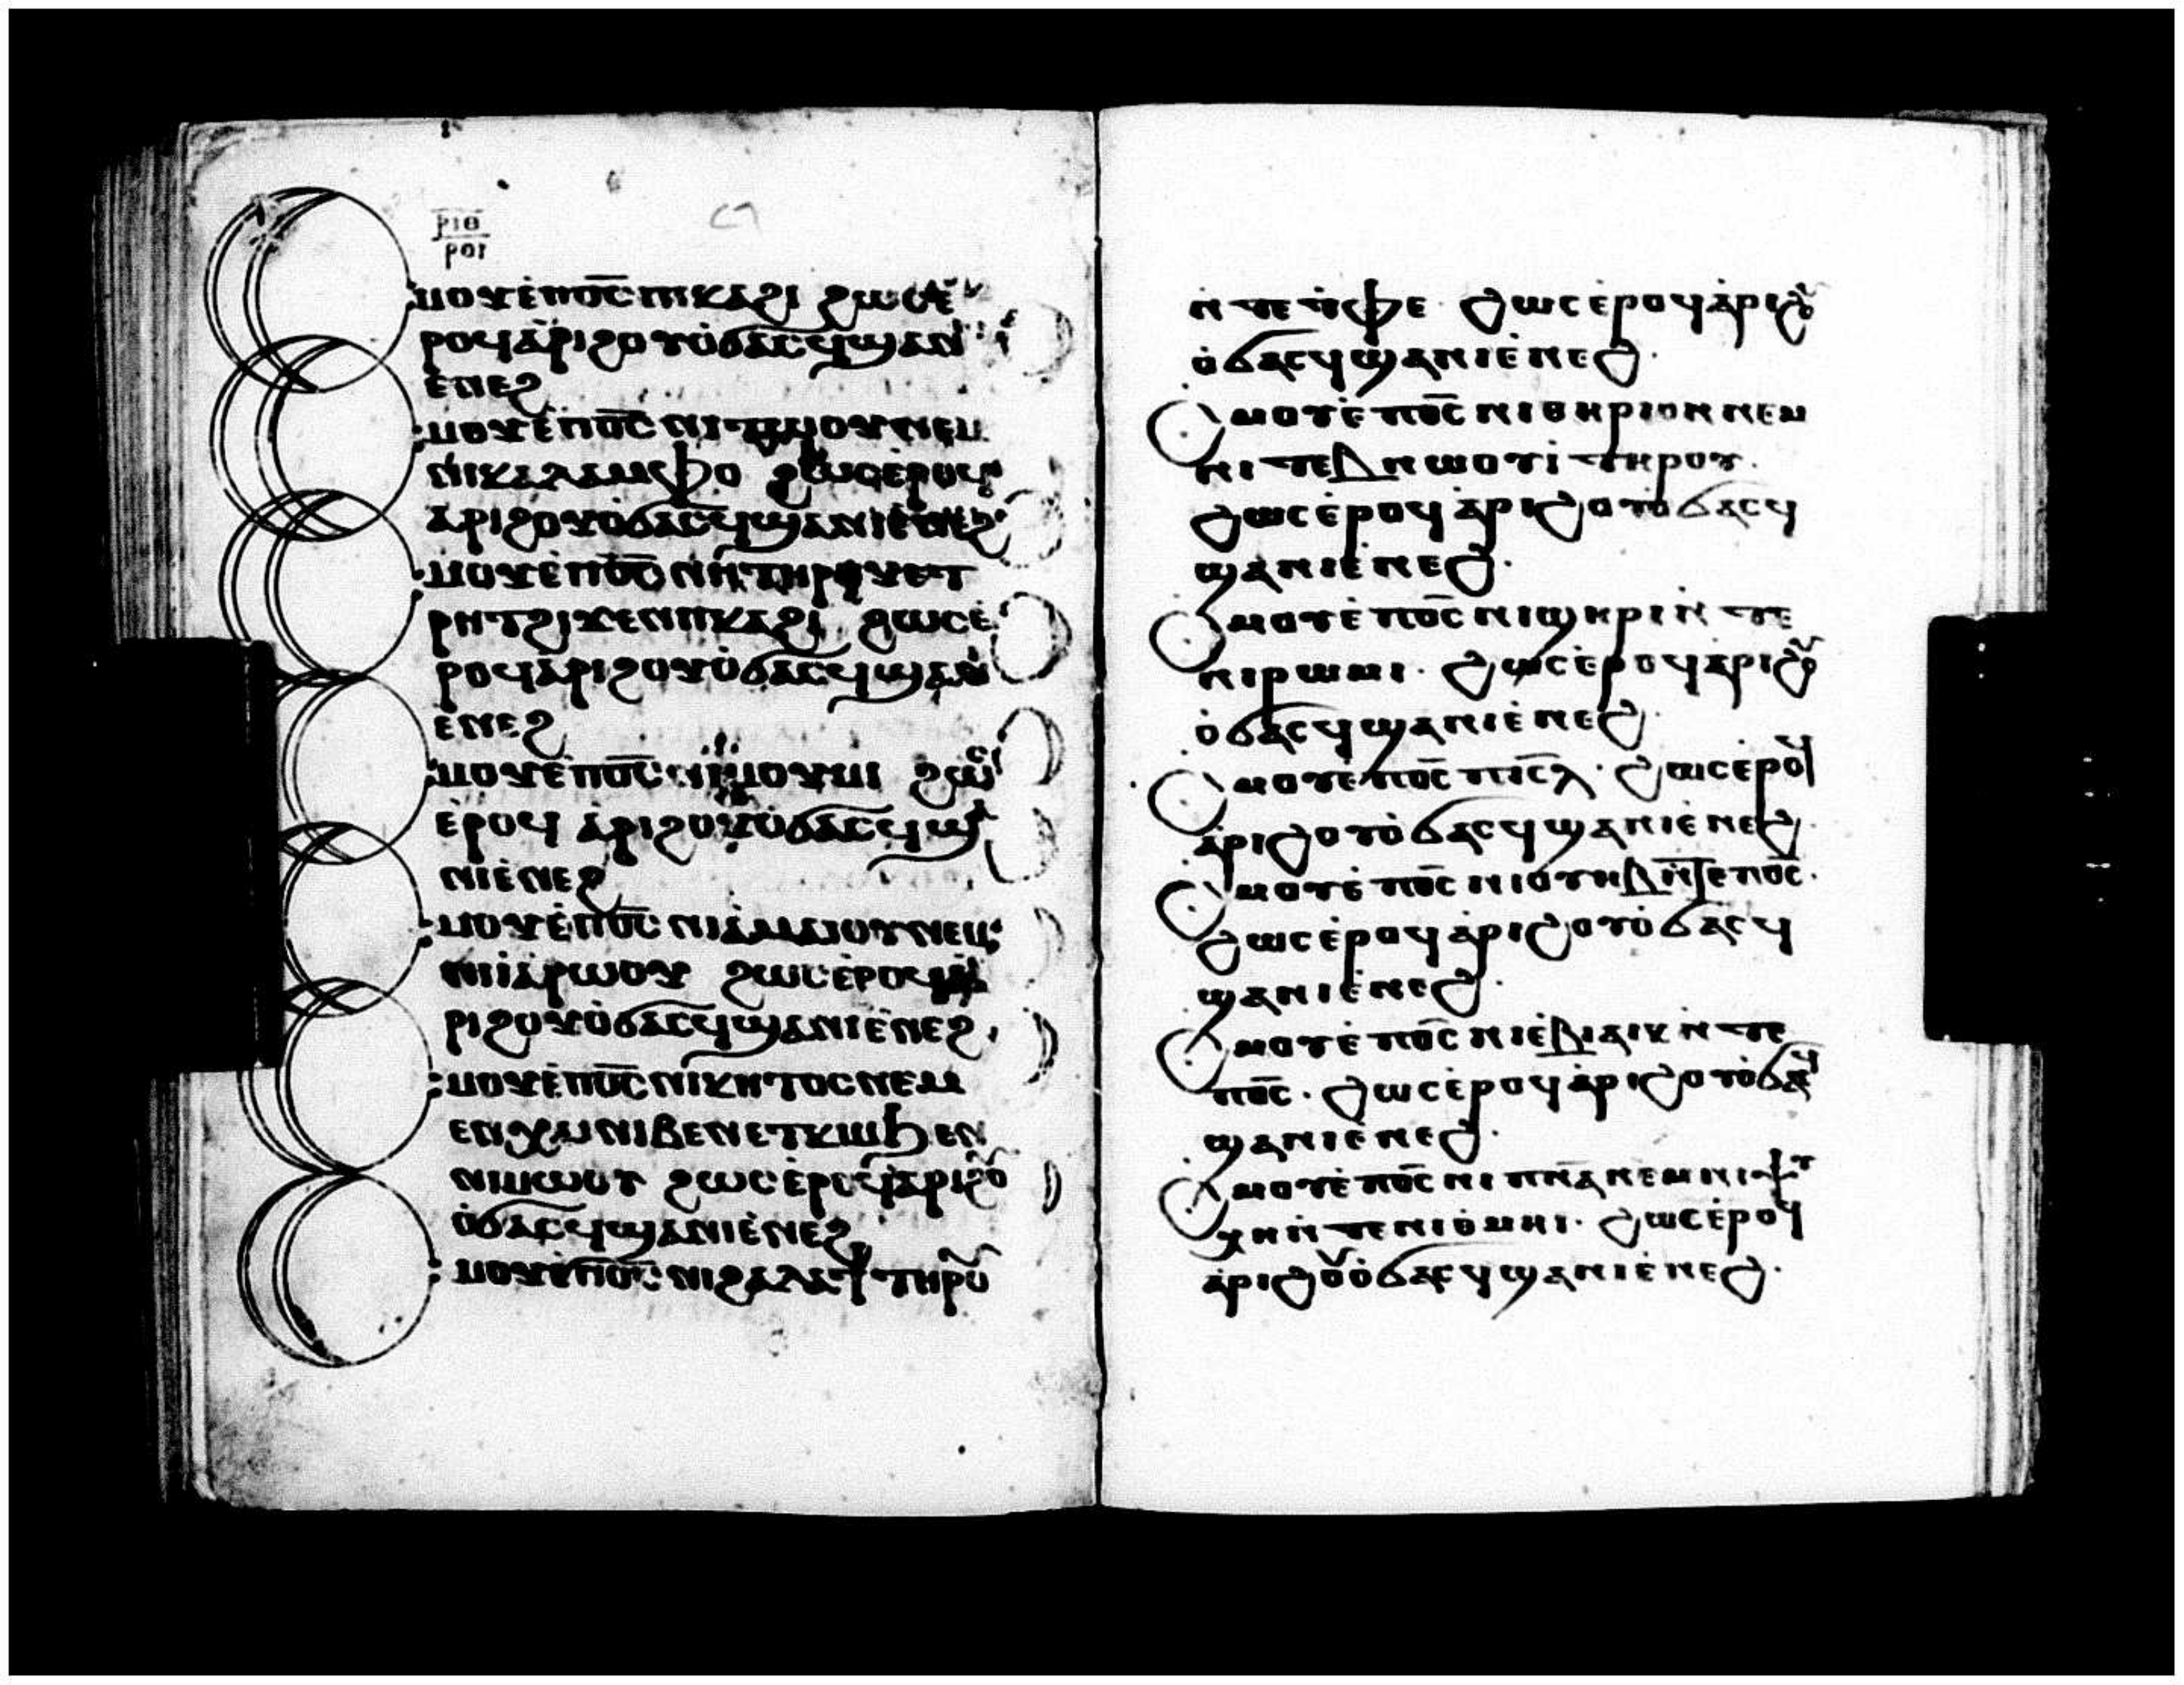 ⲣⲓⲑ
ⲣⲟⲓ
ⲙⲟⲩⲉ̇ⲡⲟ̅ⲥ̅ ⲡⲕⲁϩⲓ ϩⲱⲥⲉ̇
ⲣⲟϥⲁ̇ⲣⲓϩⲟⲩⲟ̇ϭⲁⲥϥϣⲁⲛⲓ
ⲉ̇ⲛⲉϩ
ⲙⲟⲩⲉ̇ⲡⲟ̅ⲥ̅ ⲛⲓⲧⲱⲟⲩⲛⲉⲙ
ⲛⲓⲕⲁⲗⲁⲙⲫⲟ ϩⲱⲥⲉ̇ⲣⲟϥ
ⲁ̇ⲣⲓϩⲟⲩⲟ̇ϭⲁⲥϥϣⲁⲛⲓⲉ̇ⲛⲉϩ
ⲙⲟⲩⲉ̇ⲡⲟ̅ⲥ̅ ⲛⲏⲧⲏⲣⲟⲩⲉⲧ
ⲣⲏⲧϩⲓϫⲉⲛⲡⲕⲁϩⲓ ϩⲱⲥⲉ̇
ⲣⲟϥⲁ̇ⲣⲓϩⲟⲩⲟ̇ϭⲁⲥϥϣⲁⲛⲓ
ⲉ̇ⲛⲉϩ
ⲙⲟⲩⲉ̇ⲡⲟ̅ⲥ̅ ⲛⲓⲙⲟⲩⲙⲓ ϩⲱⲥ
ⲉ̇ⲣⲟϥ ⲁ̇ⲣⲓϩⲟⲩⲟ̇ϭⲁⲥϥϣⲁ
ⲛⲓⲉ̇ⲛⲉϩ
ⲙⲟⲩⲉ̇ⲡⲟ̅ⲥ̅ ⲛⲓⲁ̇ⲙⲁⲓⲟⲩⲛⲉⲙ
ⲛⲓⲁ̇ⲣⲱⲟⲩ ϩⲱⲥⲉ̇ⲣⲟϥⲁ̇
ⲣⲓϩⲟⲩⲟ̇ϭⲁⲥϥϣⲁⲛⲓⲉ̇ⲛⲉϩ
ⲙⲟⲩⲉ̇ⲡⲟ̅ⲥ̅ ⲛⲓⲕⲏⲧⲟⲥⲛⲉⲙ
ⲉⲛⲭⲁⲓⲛⲓⲃⲉⲛⲉⲧⲕⲓⲙϧⲉⲛ
ⲛⲓⲙⲱⲟⲩ ϩⲱⲥⲉ̇ⲣⲟϥⲁ̇ⲣⲓϩⲟⲩ
ⲟ̇ϭⲁⲥϥϣⲁⲛⲓⲉ̇ⲛⲉϩ
ⲙⲟⲩⲉ̇ⲡⲟ̅ⲥ̅ ⲛⲓϩⲁⲗⲁϯ ⲧⲏⲣⲟⲩ
ⲛ̇ⲧⲉⲧ̇ⲫⲉ. ϩⲱⲥⲉ̇ⲣⲟϥⲁ̇ⲣⲓϩⲟⲩ
ⲟ̇ϭⲁⲥϥϣⲁⲛⲓⲉ̇ⲛⲉϩ.
ⲥⲙⲟⲩⲉ̇ⲡⲟ̅ⲥ̅ ⲛⲓⲑⲏⲣⲓⲟⲛⲛⲉⲙ
ⲛⲓⲧⲉⲃⲛⲱⲟⲩⲓ̇ ⲧⲏⲣⲟⲩ.
ϩⲱⲥⲉ̇ⲣⲟϥ ⲁ̇ⲣⲓϩⲟⲩⲟ̇ϭⲁⲥϥ
ϣⲁⲛⲓⲉ̇ⲛⲉϩ.
ⲥⲙⲟⲩⲉ̇ⲡⲟ̅ⲥ̅ ⲛⲓϣⲏⲣⲓⲛ̇ⲧⲉ
ⲛⲓⲣⲱⲙⲓ. ϩⲱⲥⲉ̇ⲣⲟϥⲁ̇ⲣⲓϩⲟⲩ
ⲟ̇ϭⲁⲥϥϣⲁⲛⲓⲉ̇ⲛⲉϩ.
ⲥⲙⲟⲩⲉ̇ⲡⲟ̅ⲥ̅ ⲡⲓⲥ̅ⲗ̅. ϩⲱⲥⲉ̇ⲣⲟϥ
ⲁ̇ⲣⲓϩⲟⲩⲟ̇ϭⲁⲥϥϣⲁⲛⲓⲉ̇ⲛⲉϩ.
ⲥⲙⲟⲩⲉ̇ⲡⲟ̅ⲥ̅ ⲛⲓⲟⲩⲏⲃⲛ̇ⲧⲉⲡⲟ̅ⲥ̅.
ϩⲱⲥⲉ̇ⲣⲟϥ ⲁ̇ⲣⲓϩⲟⲩⲟ̇ϭⲁⲥϥ
ϣⲁⲛⲓⲉ̇ⲛⲉϩ.
ⲥⲙⲟⲩⲉ̇ⲡⲟ̅ⲥ̅ ⲛⲓⲉ̇ⲃⲓⲁⲓⲕⲛ̇ⲧⲉ
ⲡⲟ̅ⲥ̅. ϩⲱⲥⲉ̇ⲣⲟϥⲁ̇ⲣⲓϩⲟⲩⲟ̇ϭⲁⲥϥ
ϣⲁⲛⲓⲉ̇ⲛⲉϩ.
ⲥⲙⲟⲩⲉ̇ⲡⲟ̅ⲥ̅ ⲛⲓⲡⲛ̅ⲁ̅ⲛⲉⲙⲛⲓⲯⲩ
ⲭⲏⲛ̇ⲧⲉⲛⲓⲑ̇ⲙⲏⲓ. ϩⲱⲥⲉ̇ⲣⲟϥ
ⲁ̇ⲣⲓϩⲟⲩⲟ̇ϭⲁⲥϥϣⲁⲛⲓⲉ̇ⲛⲉϩ.